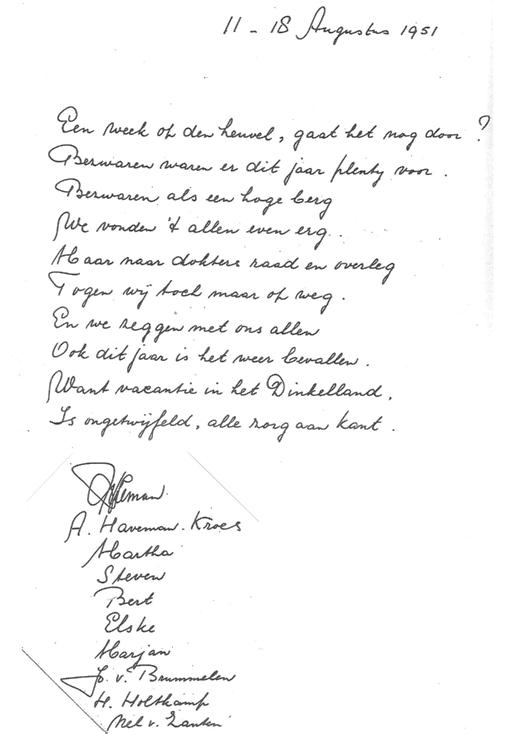 11 - 18 Augustus 1951
Een week op den heuvel, gaat het nog door?
Bezwaren waren er dit jaar plenty voor.
Bezwaren als een hoge berg
We vonden 't allen even erg.
Maar naar dokters raad en overleg
Togen wij toch maar op weg.
En we zeggen met ons allen
Ook dit jaar is het weer bevallen.
Want vacantie in het Dinkelland,
Is ongetwijfeld, alle zorg aan kant.
A. Haveman-Kroes
Martha
Steven
Bert
Elske
Marjan
v. Brummelen
H. Holtkamp
Nel v. Zanten